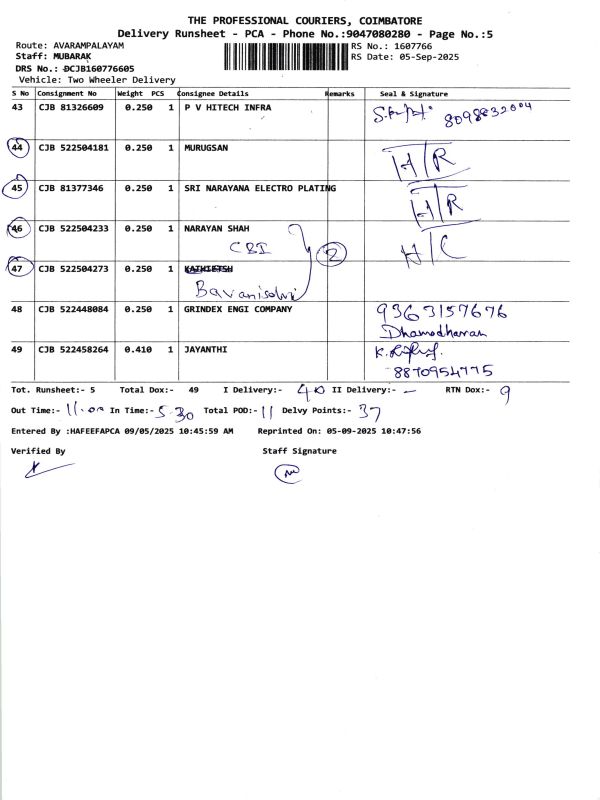 THE PROFESSIONAL COURIERS, COIMBATORE
Delivery Runsheet - PCA - Phone No.:9047080280 - Page No.:5
Route: AVARAMPALAYAM RS No.: 1607766
Staff: MUBARAK RS Date: 05-Sep-2025
DRS No.: DCJB160776605
Vehicle: Two Wheeler Delivery
S No Consignment No Weight PCS Consignee Details Remarks Seal & Signature
43 CJB 81326609 0.250 1 P V HITECH INFRA 8098832004
44 CJB 522504181 0.250 1 MURUGSAN H/R
45 CJB 81377346 0.250 1 SRI NARAYANA ELECTRO PLATING H/R
46 CJB 522504233 0.250 1 NARAYAN SHAH H/C
CBI 2
47 CJB 522504273 0.250 1
Bavaniselvi
48 CJB 522448084 0.250 1 GRINDEX ENGI COMPANY 9363157676
Dhamodharan
49 CJB 522458264 0.410 1 JAYANTHI
8870954775
Tot. Runsheet:- 5 Total Dox:- 49 I Delivery:- 40 II Delivery:- - RTN Dox:- 9
Out Time:- 11.00 In Time:- 5.30 Total POD:- 11 Delvy Points:- 37
Entered By :HAFEEFAPCA 09/05/2025 10:45:59 AM Reprinted On: 05-09-2025 10:47:56
Verified By Staff Signature